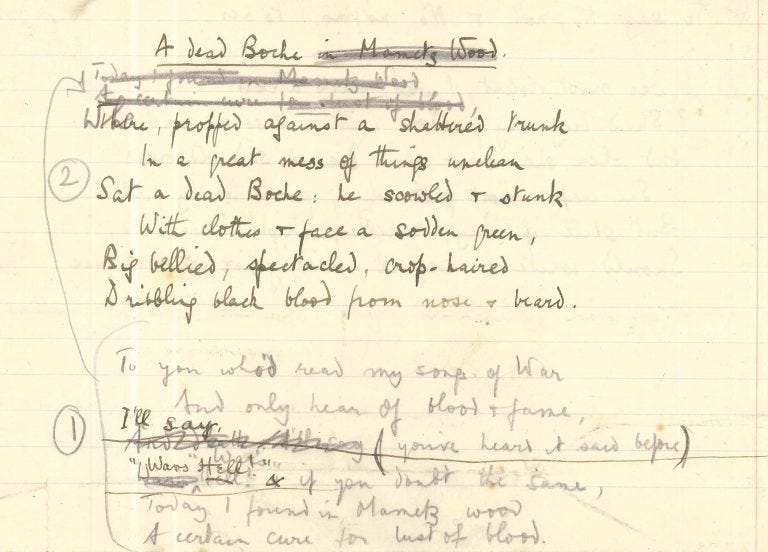 A dead Boche in Mametz Wood.
Today I found in Mametz Wood
A certain cure for lust of blood,
Where, propped against a shattered trunk
In a great mess of things unclean
② Sat a dead Boche: he scowled & stunk
With clothes & face a sodden green,
Big bellied, spectacled, crop-haired
Dribbling black blood from nose & beard.
To you who'd read my songs of War
And only hear of blood & fame,
① I'll say
(you've heard it said before)
"Wars Hell" & if you doubt the same,
Today I found in Mametz wood
A certain cure for lust of blood.